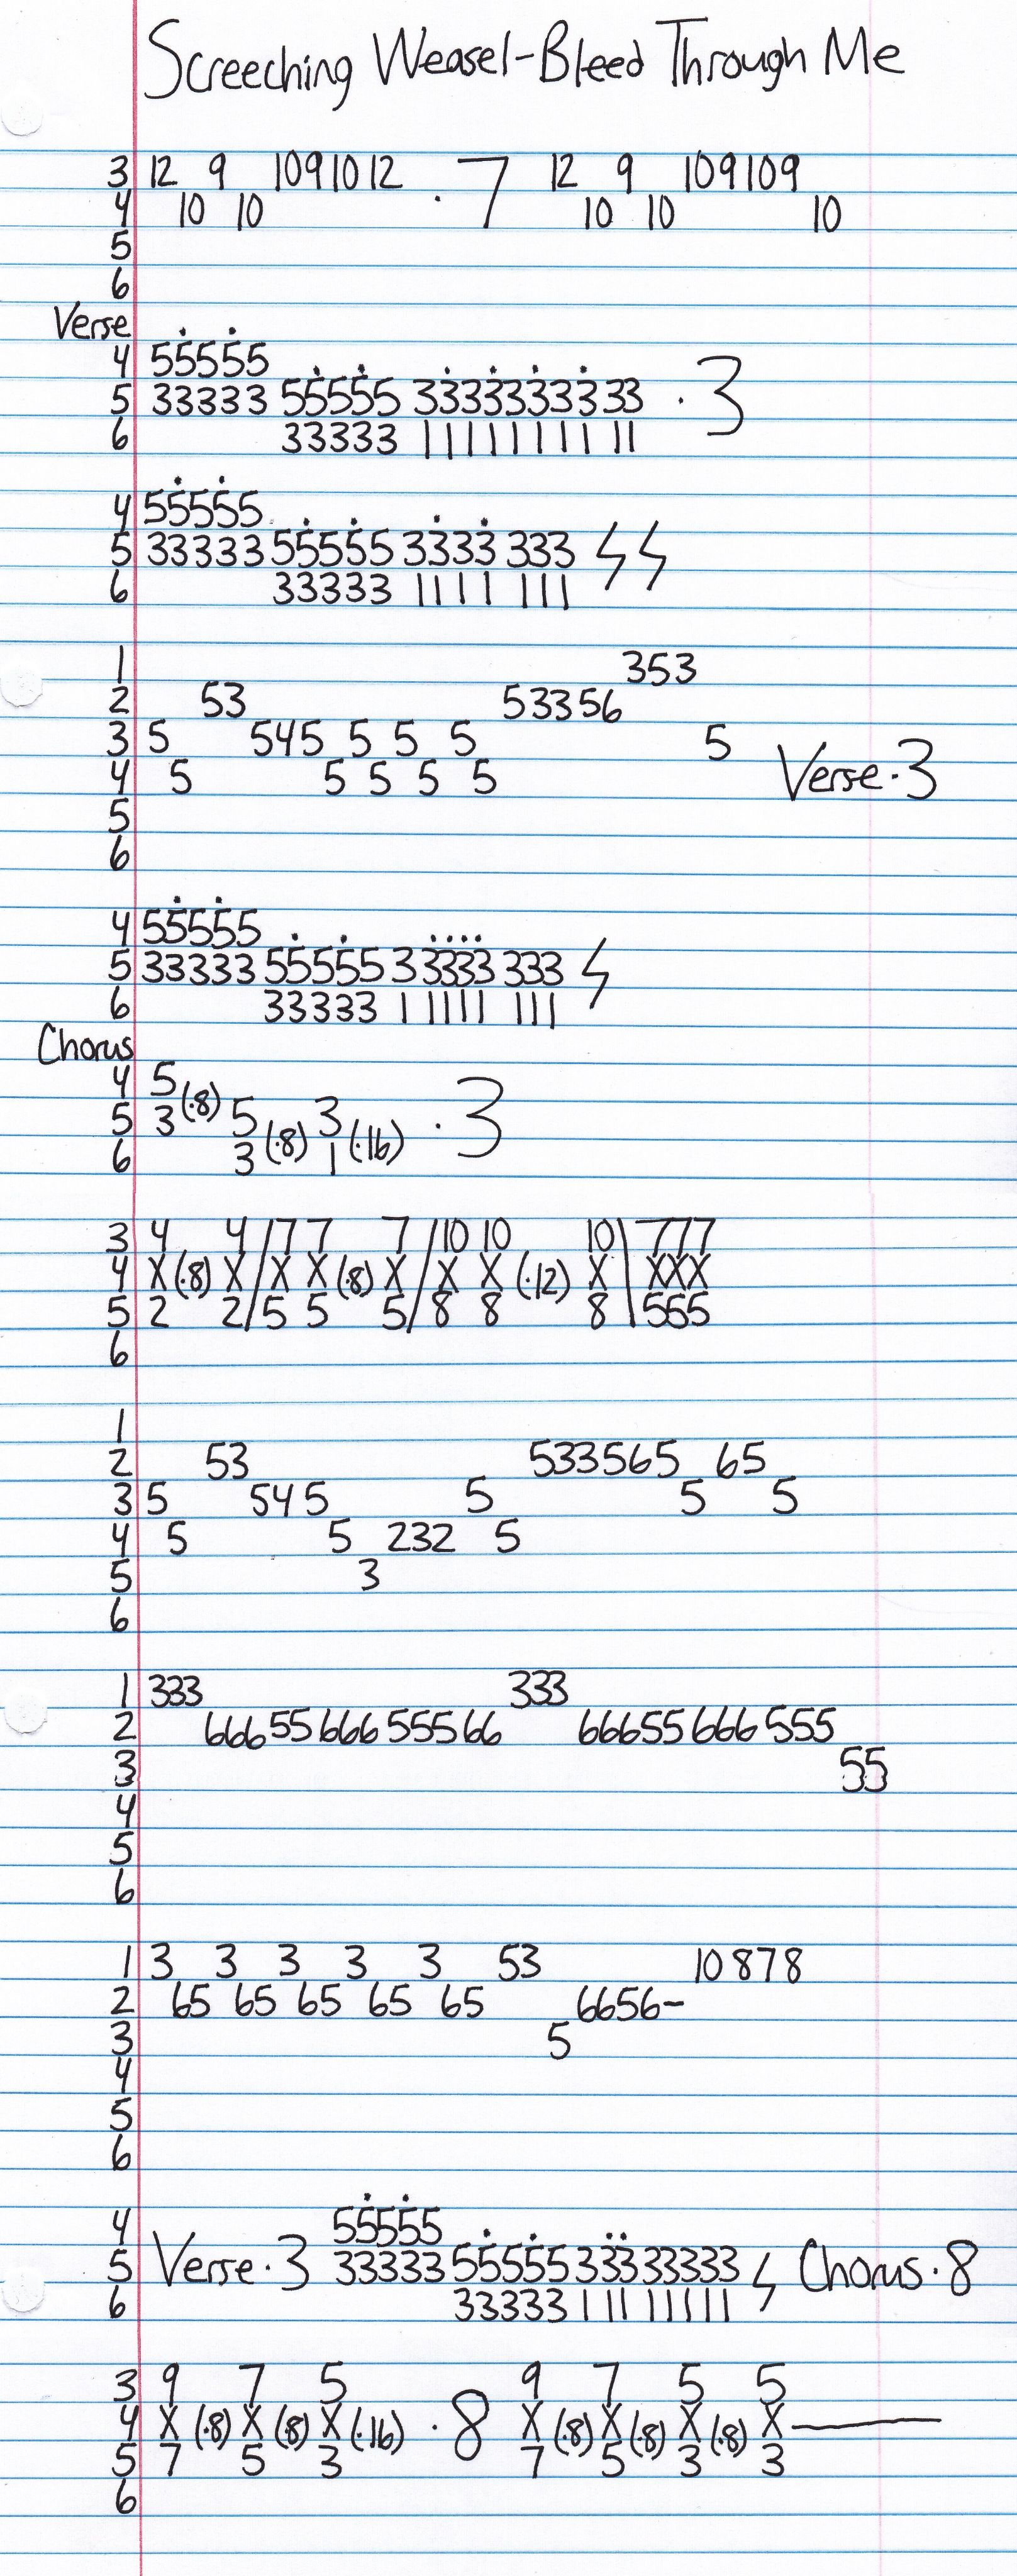 Screeching Weasel-Bleed Through Me
3 12 9 10 9 10 12 · 7 12 9 10 9 10 9
4 10 10 10 10 10
5
6
Verse
4 55555
5 33333 55555 3333333333 · 3
6 33333 1111111111
4 55555
5 33333 55555 3333 333
6 33333 1111 111
1 353
2 53 53356
3 5 545 5 5 5 5 Verse · 3
4 5 5 5 5 5
5
6
4 55555
5 33333 55555 3 3333 333
6 33333 1 1111 111
Chorus
4 5
5 3 (·8) 5 3 · 3
6 3 (·8) 1 (·16)
3 4 4 / 7 7 7 / 10 10 10 \ 777
4 X (·8) X / X X (·8) X / X X (·12) X \ XXX
5 2 2 / 5 5 5 / 8 8 8 \ 555
6
1
2 53 533565 65
3 5 545 5 5 5
4 5 5 232 5
5 3
6
1 333 333
2 666 55 666 555 66 666 55 666 555
3 55
4
5
6
1 3 3 3 3 3 53 10 8 7 8
2 65 65 65 65 65 6656-
3 5
4
5
6
4 55555
5 Verse · 3 33333 55555 333 33333 Chorus · 8
6 33333 1 11 11111
3 9 7 5 9 7 5 5
4 X (·8) X (·8) X (·16) · 8 X (·8) X (·8) X (·8) X
5 7 5 3 7 5 3 3
6